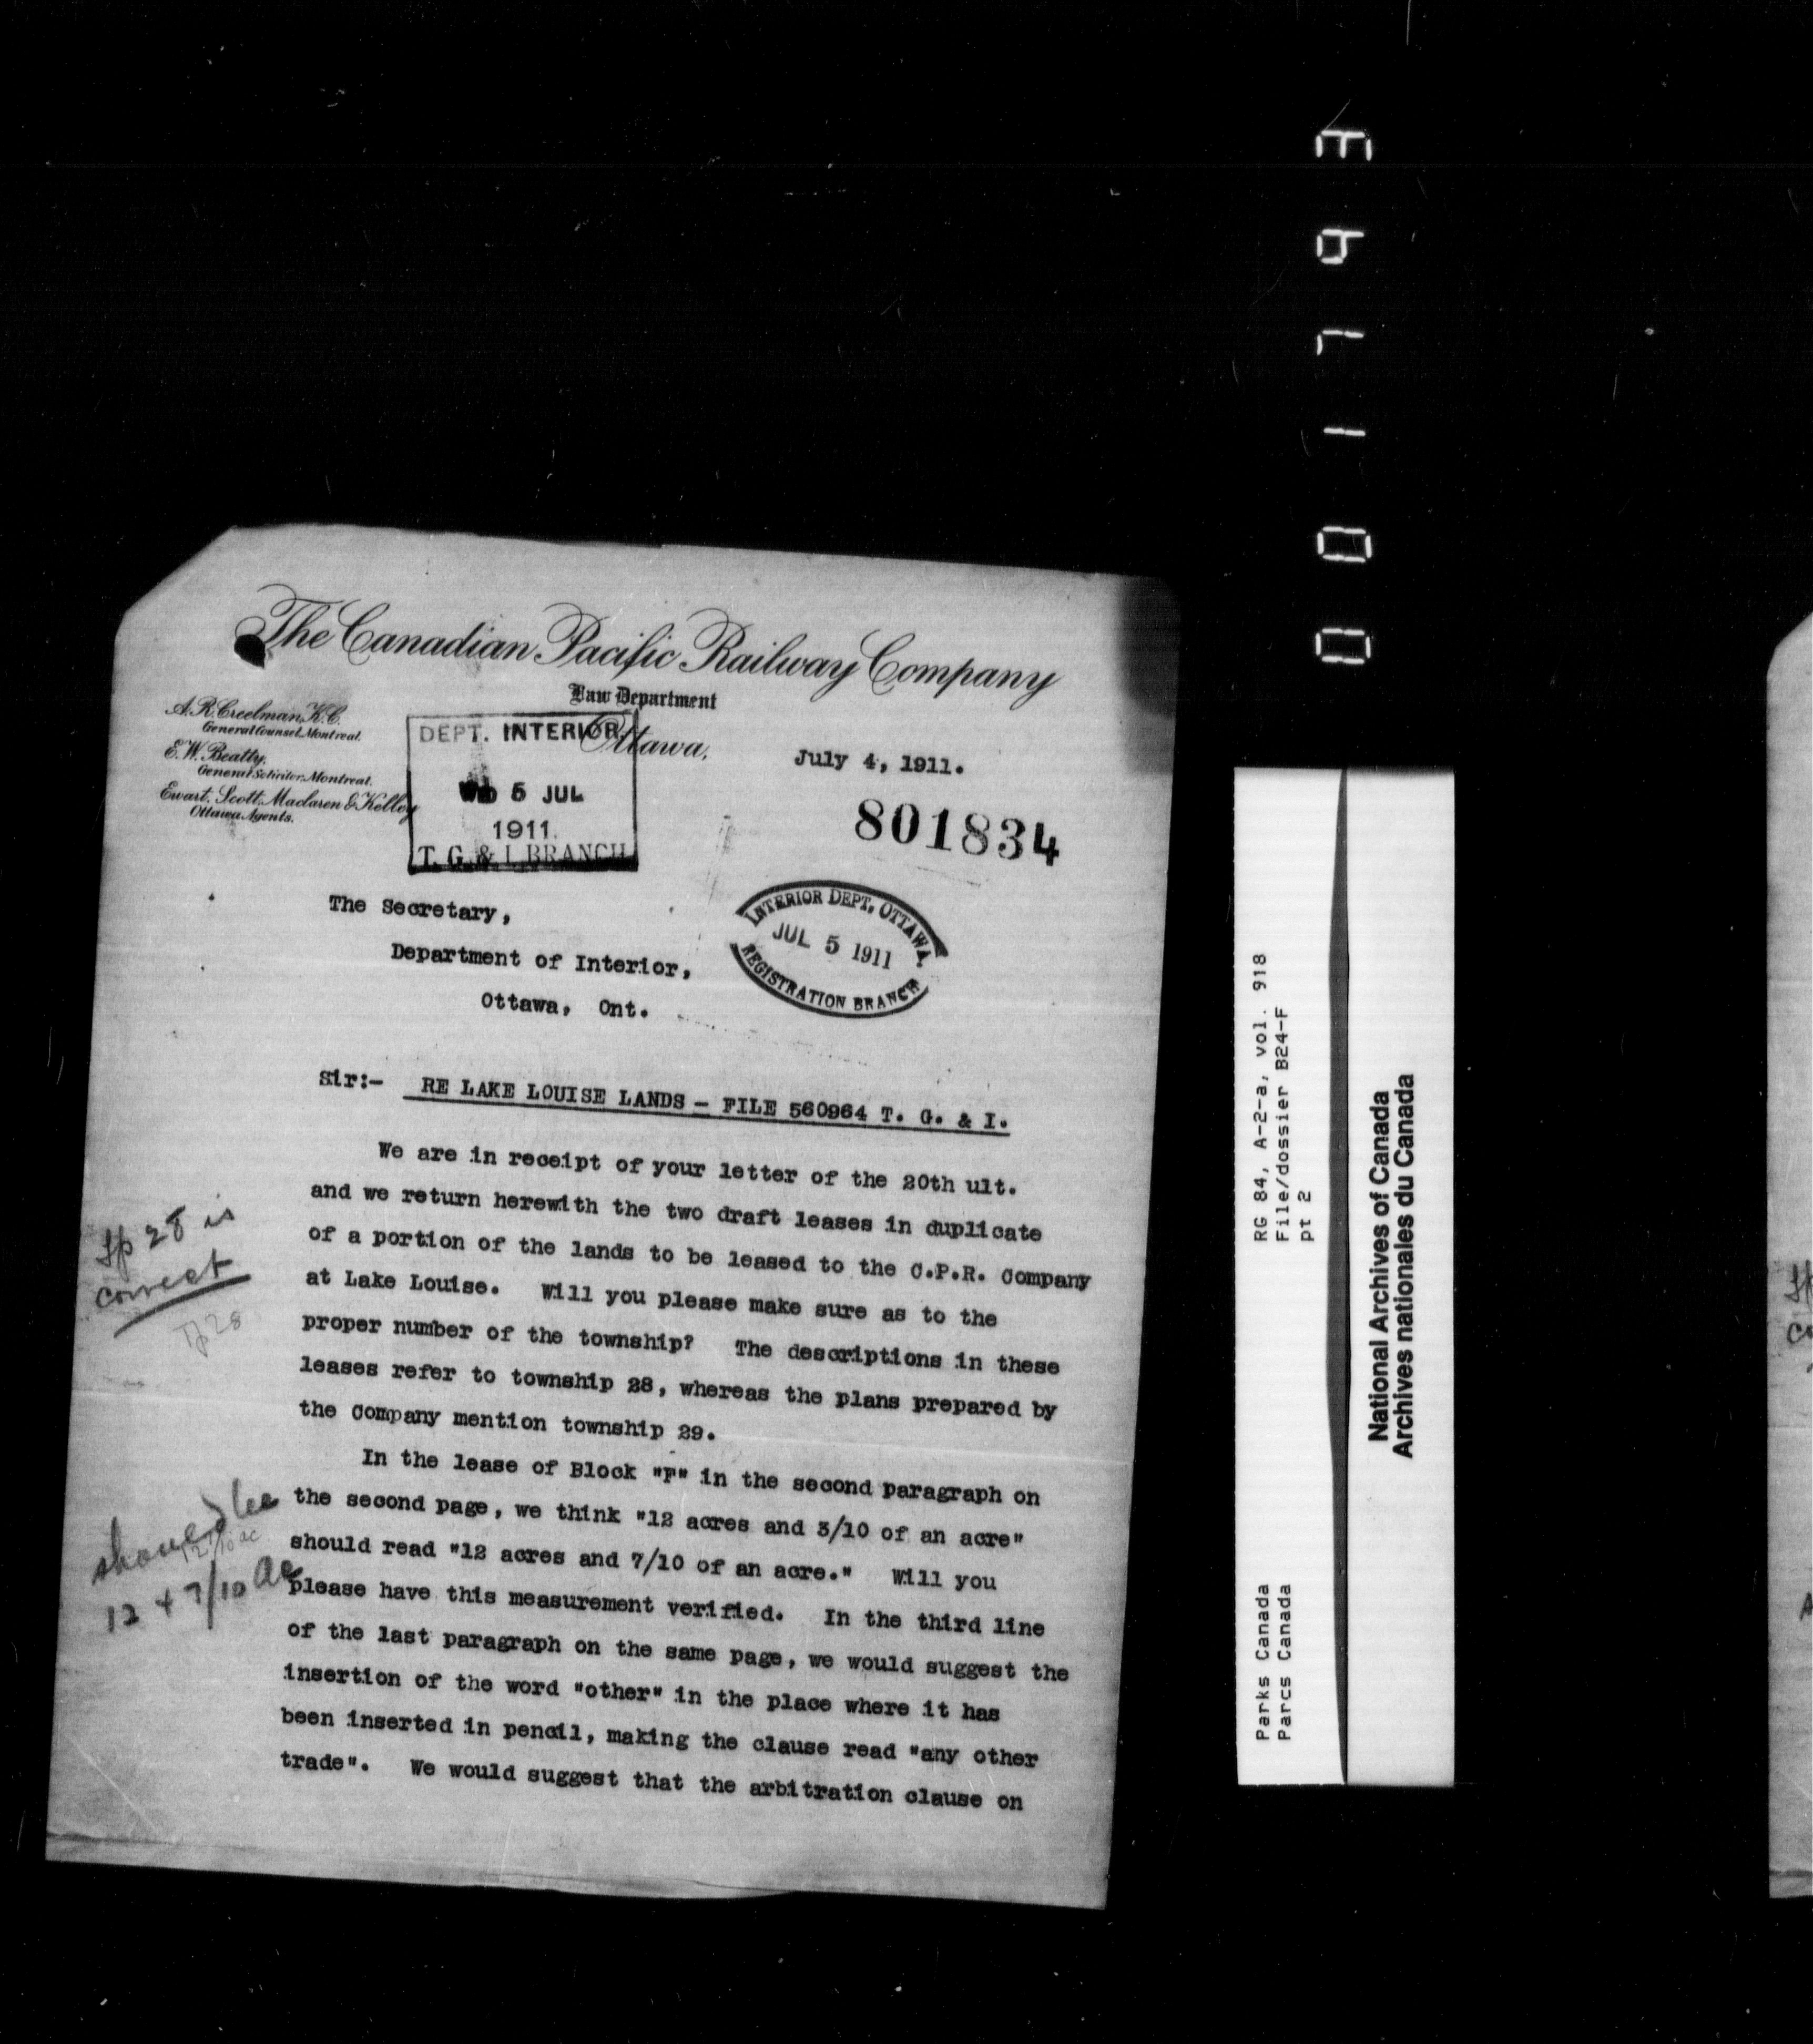 The Canadian Pacific Railway Company
Law Department
A. R. Creelman, K.C.
General Counsel, Montreal.
E. W. Beatty,
General Solicitor, Montreal.
Ewart, Scott, Maclaren & Kelley
Ottawa Agents.
DEPT. INTERIOR
5 JUL
1911
T. G. & I. BRANCH
Ottawa,
July 4, 1911.
801834
The Secretary,
Department of Interior,
Ottawa, Ont.
INTERIOR DEPT. OTTAWA.
JUL 5 1911
REGISTRATION BRANCH
Sir:- RE LAKE LOUISE LANDS - FILE 560964 T. G. & I.
We are in receipt of your letter of the 20th ult.
and we return herewith the two draft leases in duplicate
of a portion of the lands to be leased to the C.P.R. Company
at Lake Louise. Will you please make sure as to the
proper number of the township? The descriptions in these
leases refer to township 28, whereas the plans prepared by
the Company mention township 29.
Tp 28 is
correct
Tp 28
In the lease of Block "F" in the second paragraph on
the second page, we think "12 acres and 3/10 of an acre"
should read "12 acres and 7/10 of an acre." Will you
please have this measurement verified. In the third line
of the last paragraph on the same page, we would suggest the
insertion of the word "other" in the place where it has
been inserted in pencil, making the clause read "any other
trade". We would suggest that the arbitration clause on
should be
12 7/10 ac
12 + 7/10 Ac
RG 84, A-2-a, vol. 918
File/dossier B24-F
pt 2
Parks Canada
Parcs Canada
National Archives of Canada
Archives nationales du Canada